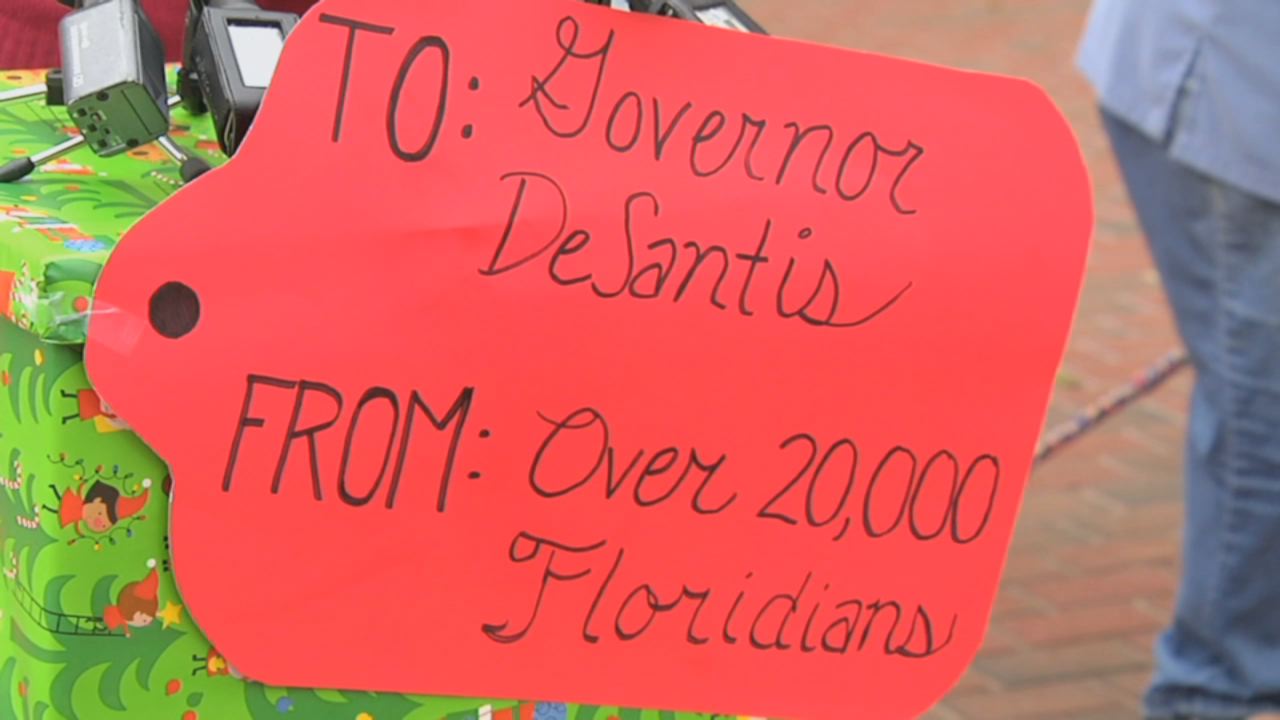 TO: Governor
DeSantis
FROM: Over 20,000
Floridians